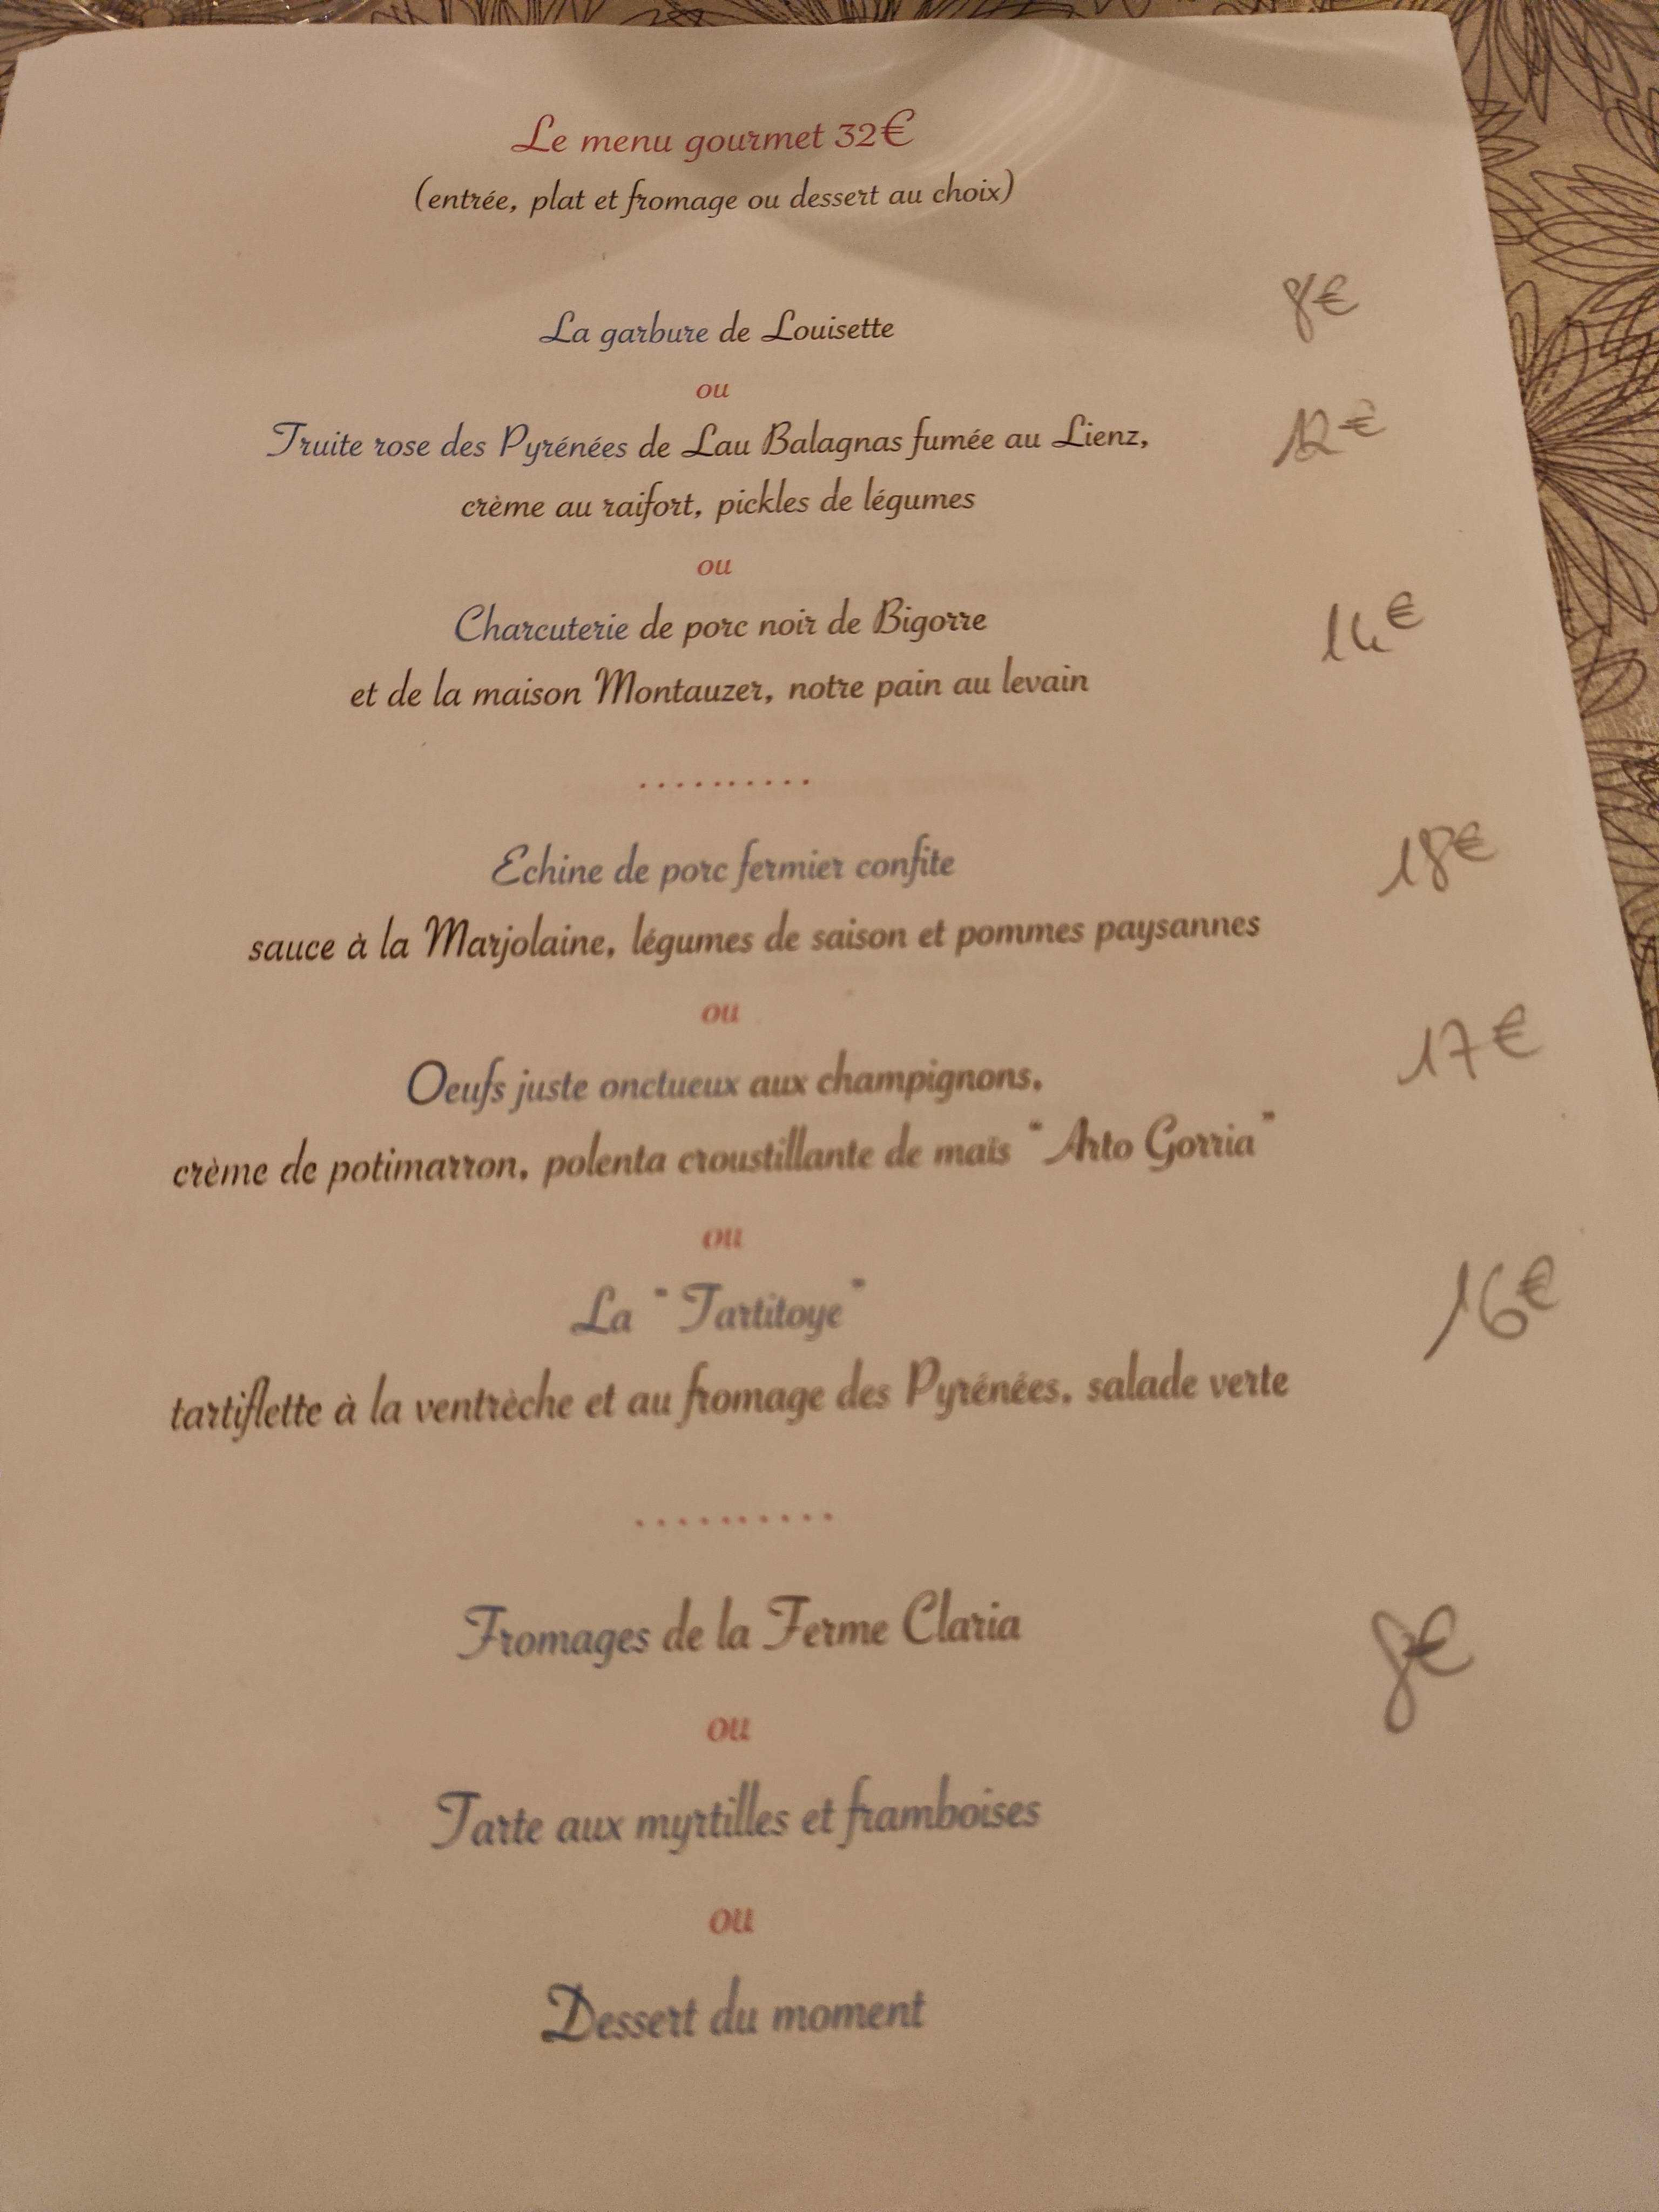 Le menu gourmet 32€
(entrée, plat et fromage ou dessert au choix)
8€
La garbure de Louisette
ou
12€
Truite rose des Pyrénées de Lau Balagnas fumée au Lienz,
crème au raifort, pickles de légumes
ou
14€
Charcuterie de porc noir de Bigorre
et de la maison Montauzer, notre pain au levain
..........
18€
Echine de porc fermier confite
sauce à la Marjolaine, légumes de saison et pommes paysannes
ou
17€
Oeufs juste onctueux aux champignons,
crème de potimarron, polenta croustillante de maïs "Arto Gorria"
ou
16€
La "Tartitoye"
tartiflette à la ventrèche et au fromage des Pyrénées, salade verte
..........
Fromages de la Ferme Claria
8€
ou
Tarte aux myrtilles et framboises
ou
Dessert du moment